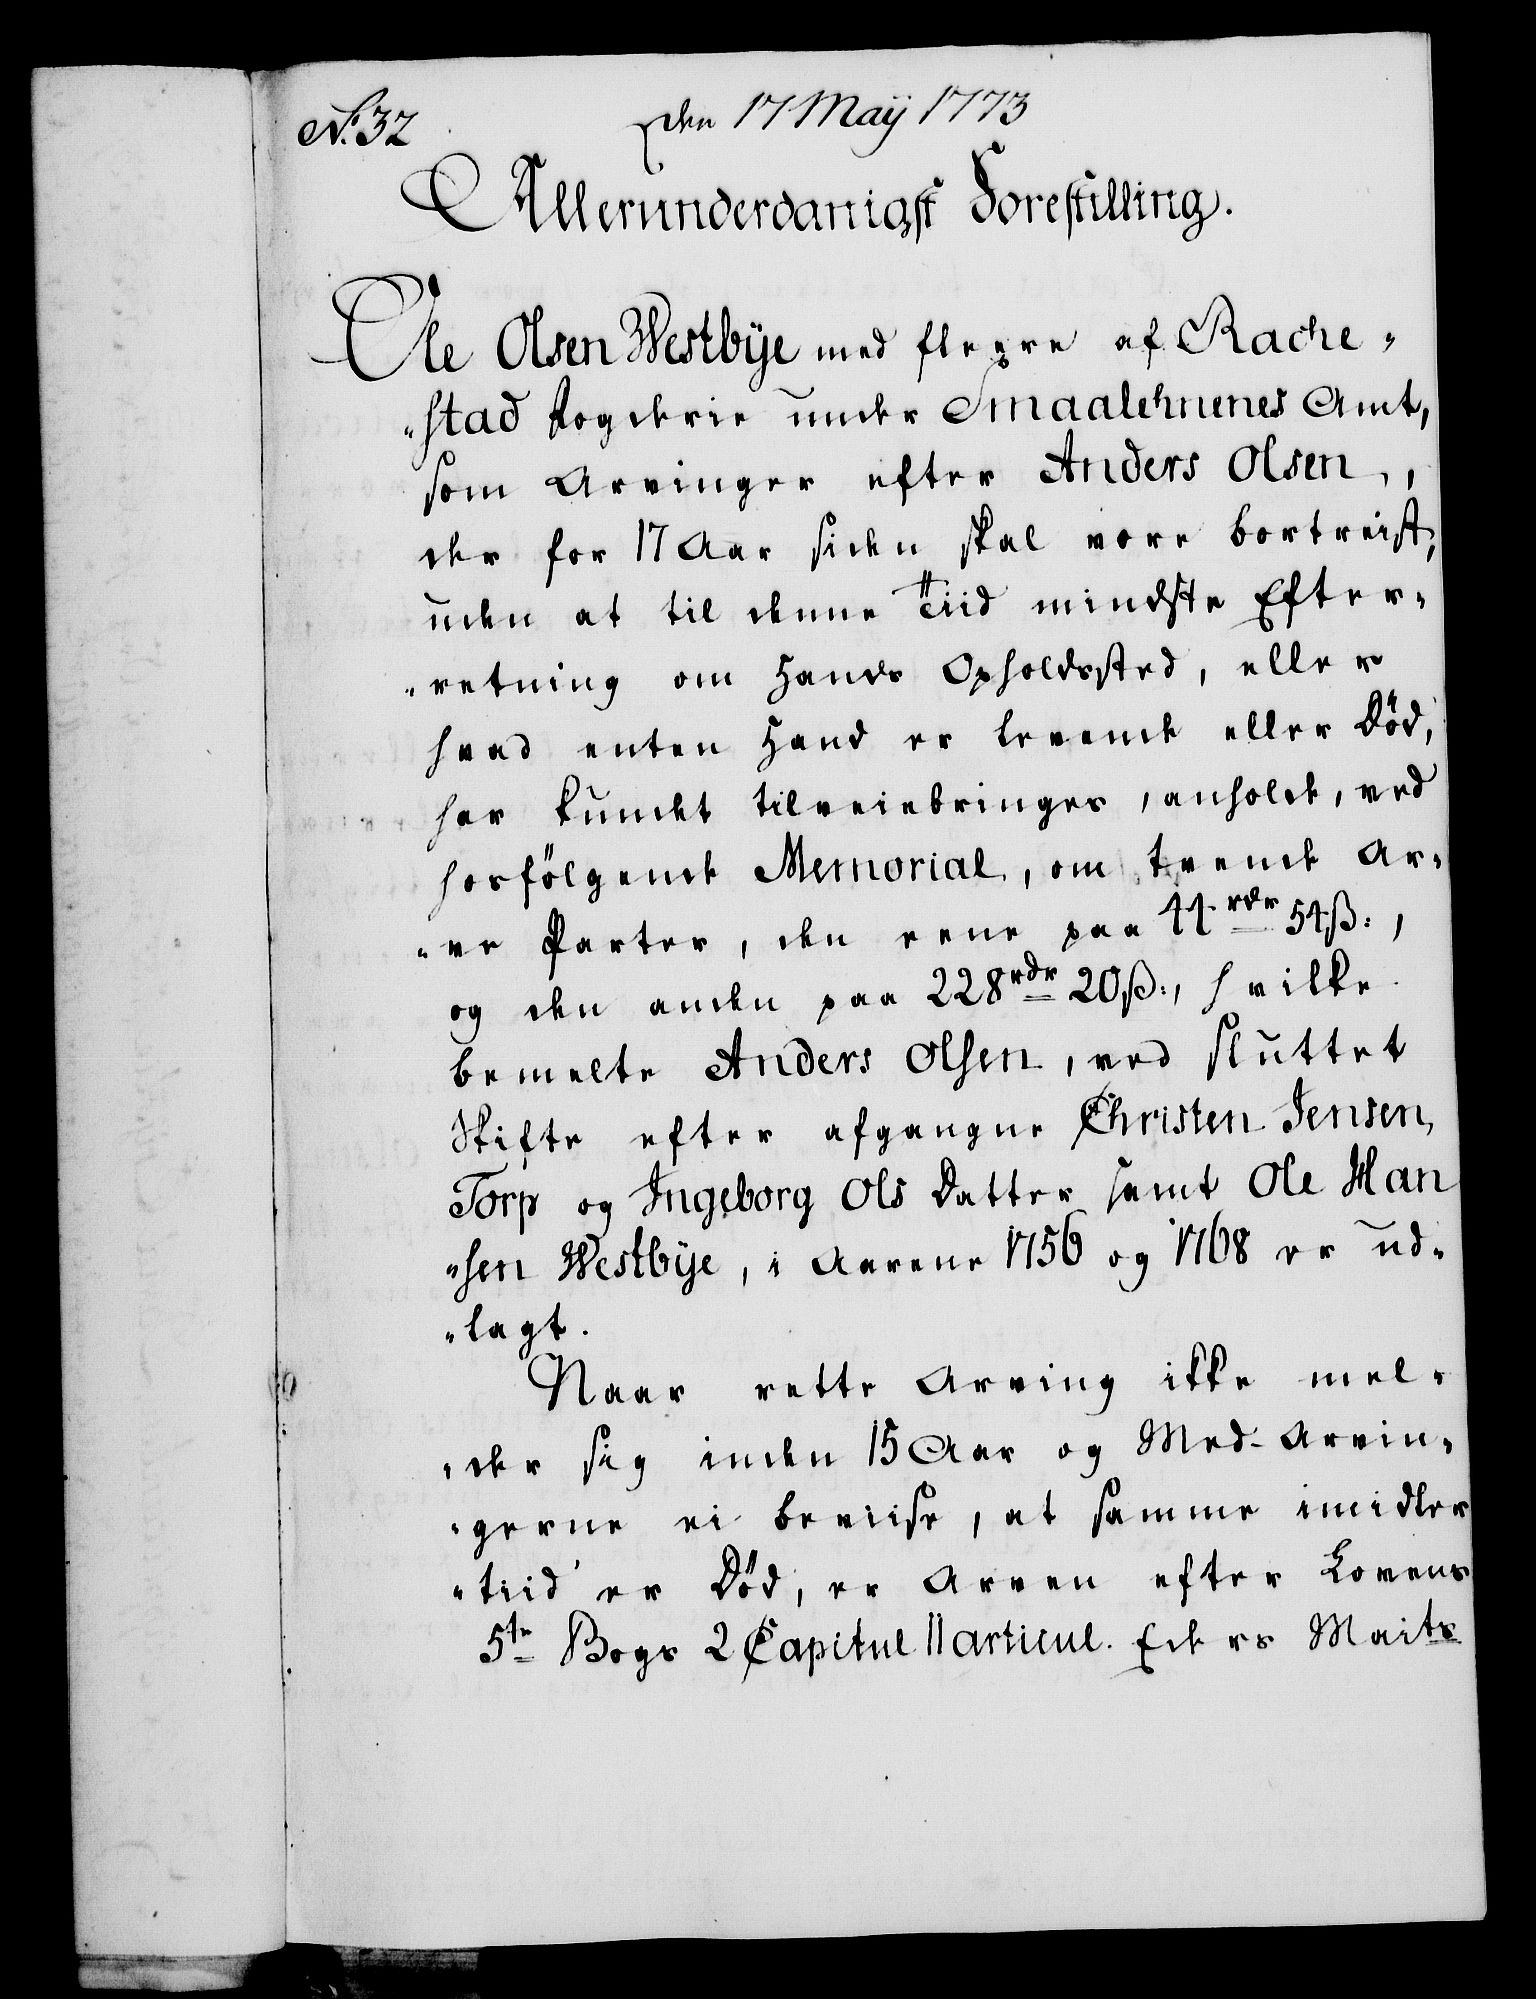 No. 32
den 17 Maÿ 1773
Allerunderdanigst Forestilling.
Ole Olsen Westbÿe med fleere af Rache-
-stad Fogderie under Smaalehnenes Amt,
som Arvinger efter Anders Olsen,
der for 17 Aar siden skal være bortreist,
uden at til denne Tiid mindste Efter-
-retning om Hands Opholdssted, eller
hvad enten Hand er levende eller Död,
har kundet tilveiebringes, anholde, ved
hosfölgende Memorial, om tvende Ar-
-ve Parter, den eene paa 44 rdr 54 ß:,
og den anden paa 228 rdr 20 ß:, hvilke
bemelte Anders Olsen, ved sluttet
Skifte efter afgangne Christen Jensen
Torp og Ingeborg Ols Datter samt Ole Han
-sen Westbÿe, i Aarene 1756 og 1768 er ud-
-lagt.
Naar rette Arving ikke mel-
-der sig inden 15 Aar og Med-Arvin-
-gerne ei beviise, at samme imidler
-tiid er Död, er Arven efter Lovens
5te Bogs 2 Capitul 11 articul. Eders Maits